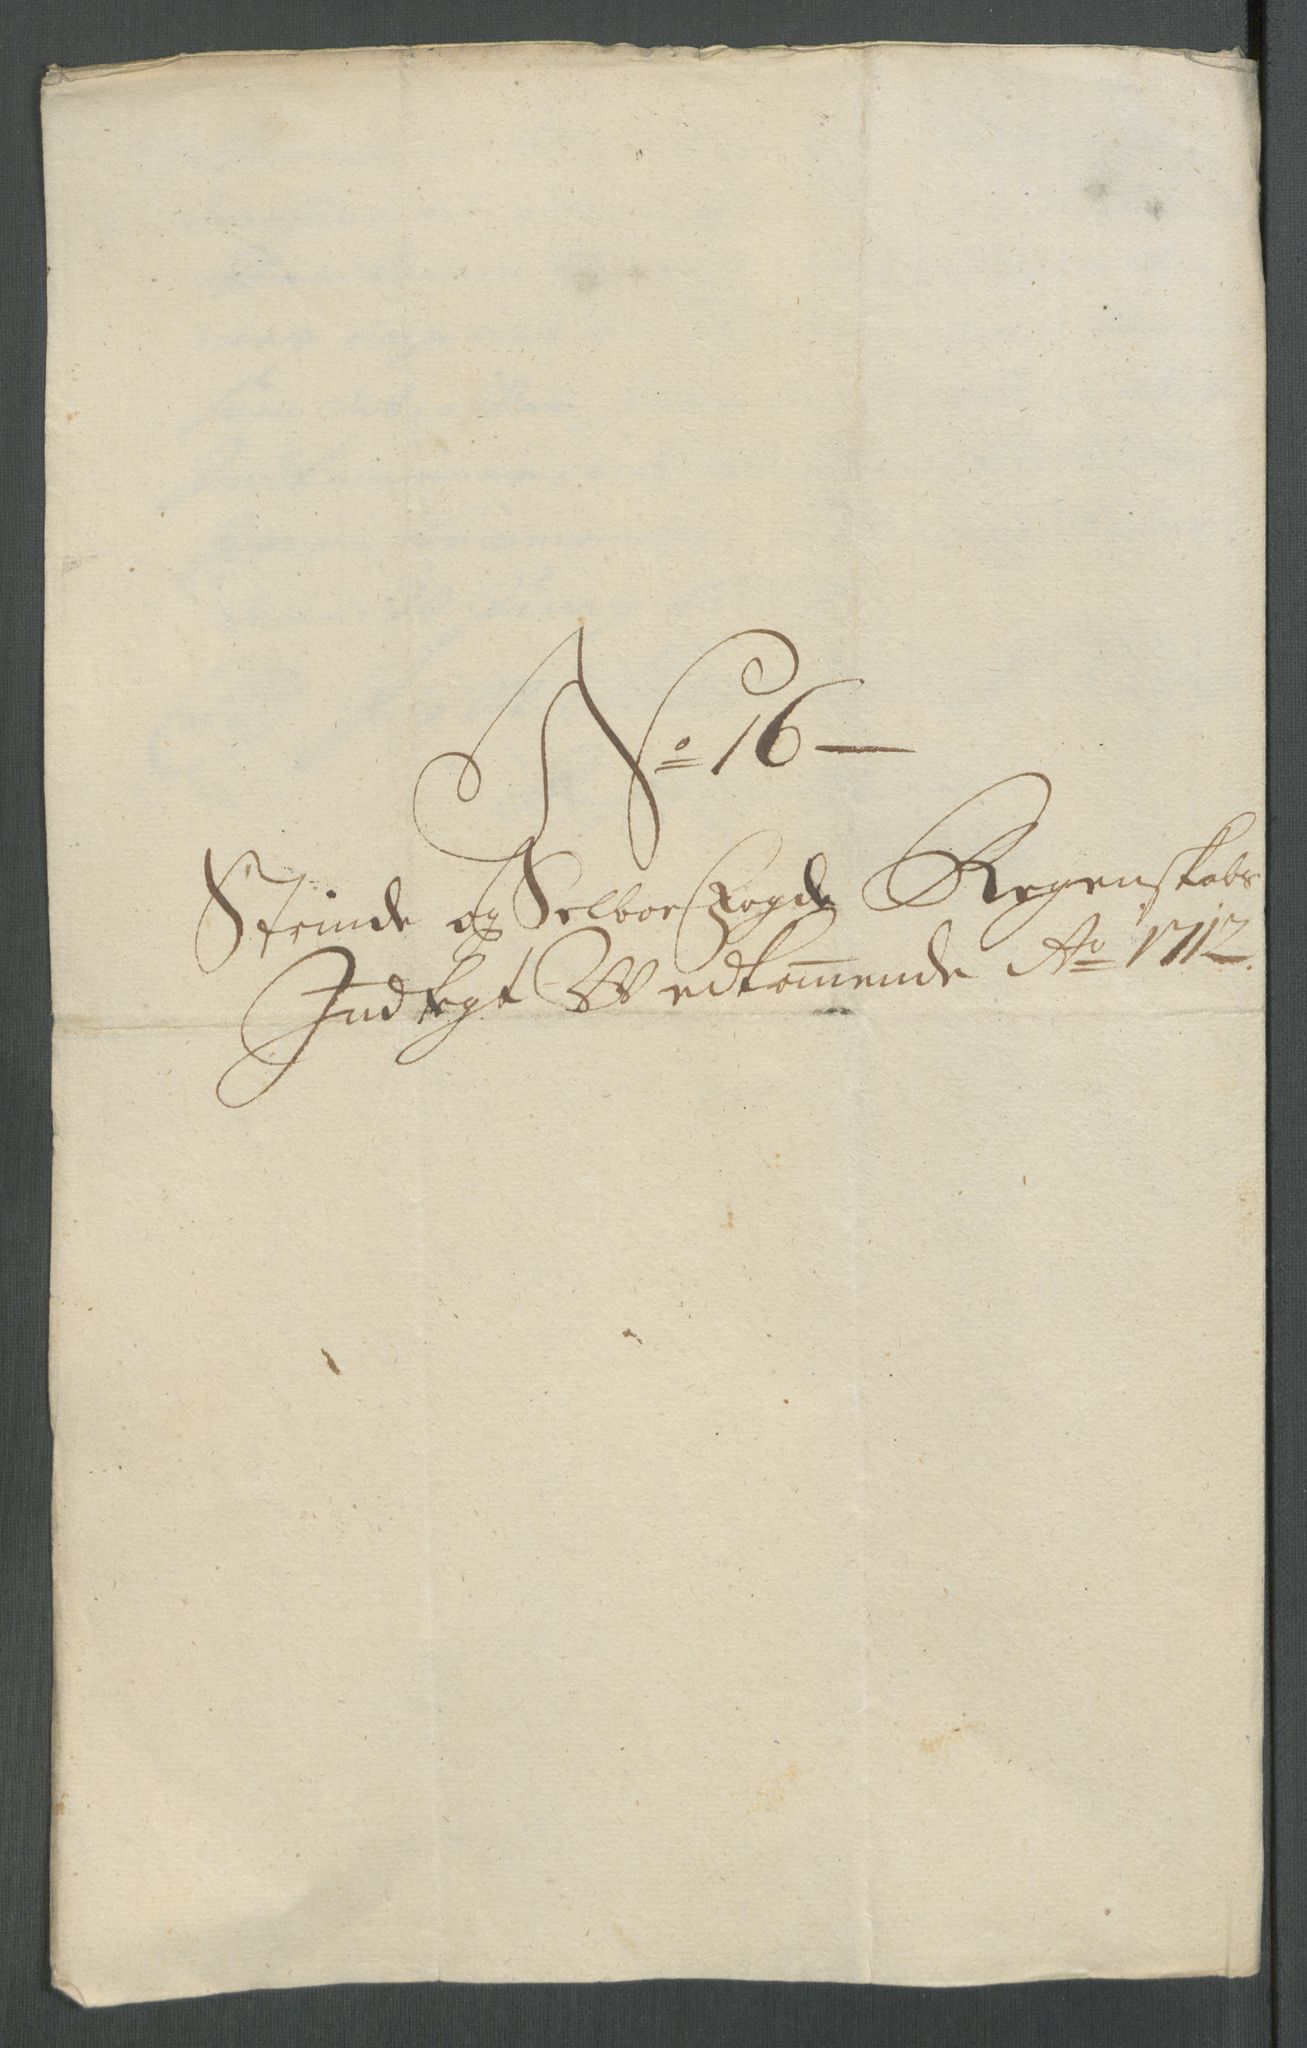 No 16 —
Strinde og Selboe Fogde Regenskabs
Indtegt Wedkom̅ende Ao 1712.